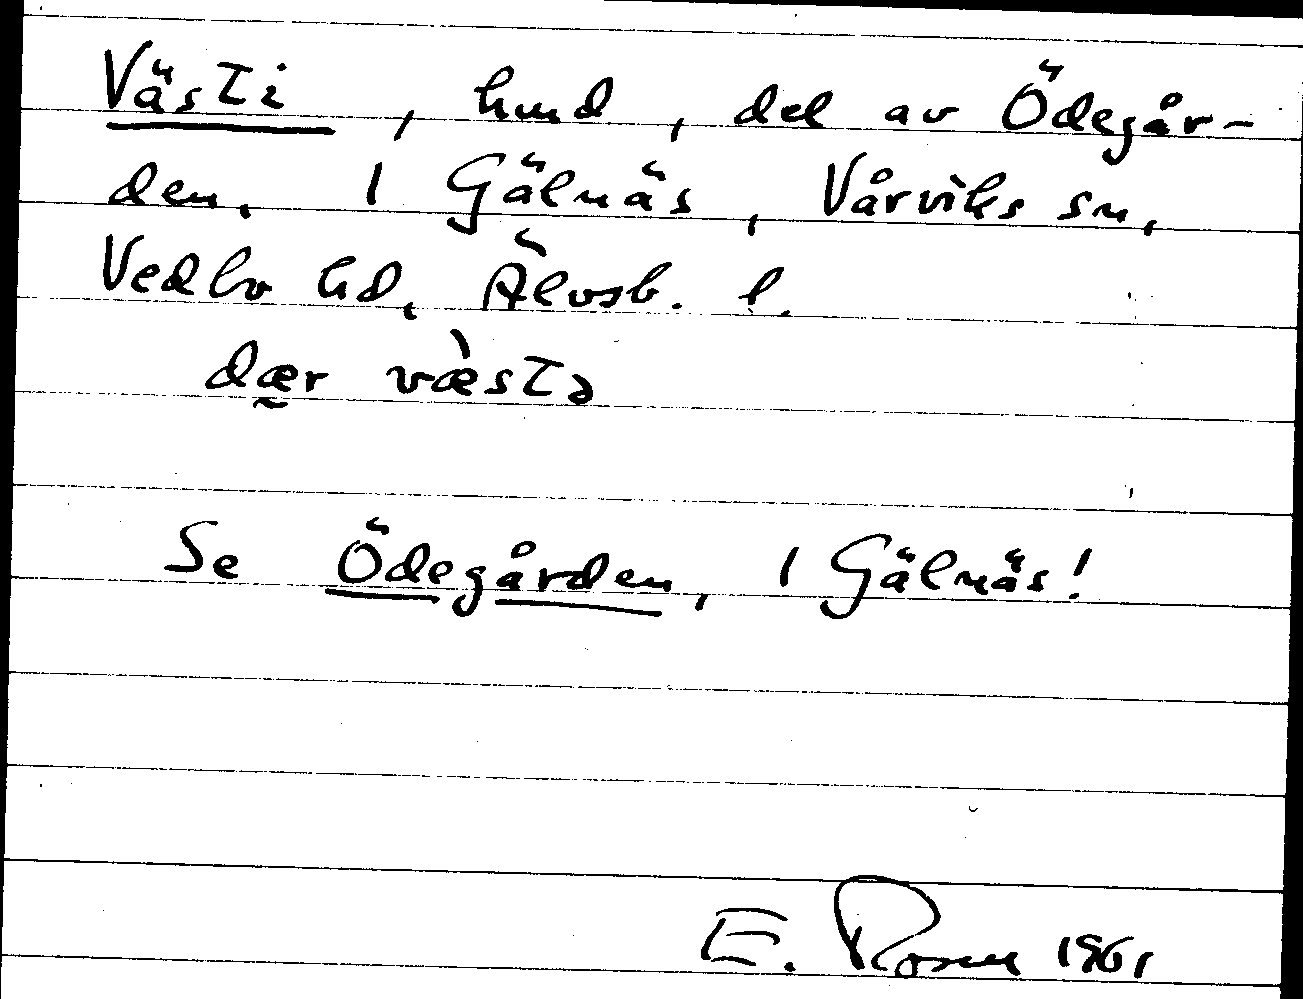 Västi, hmd, del av Ödegår-
den, 1 Gälnäs, Vårviks sn,
Vedbo hd, Älvsb. l.
dær væ̀stə
Se Ödegården, 1 Gälnäs!
E. Rosen 1961